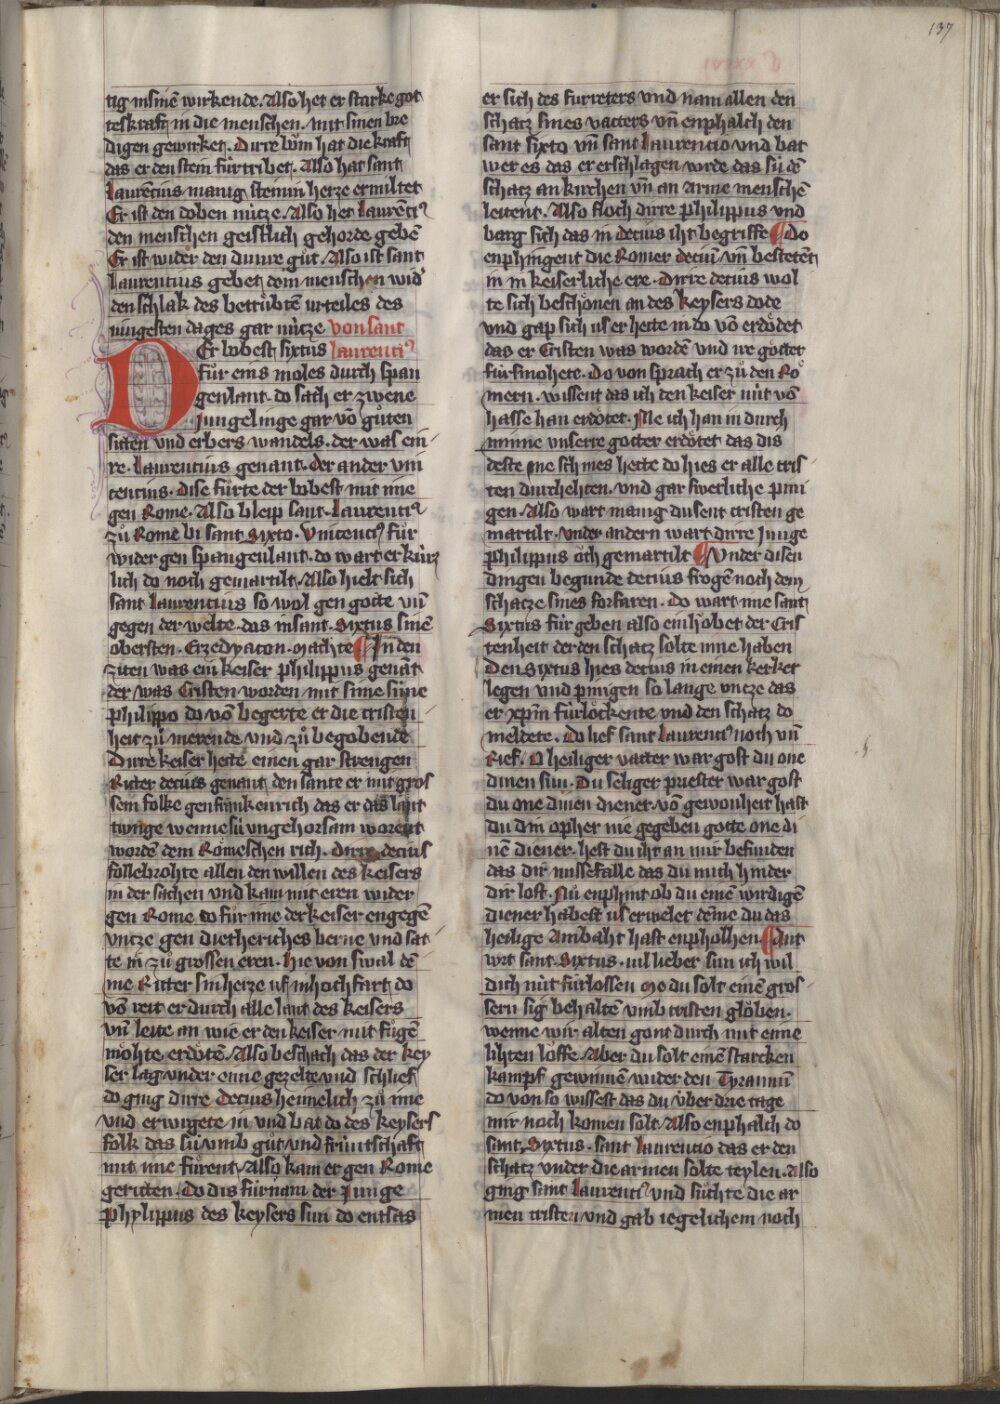 137
tig insinē wirkende. Also het er starke got
teskraft in die menschen. mit sinen bre
digen gewirket. Dirre bôm hat die kraft
das er den stein fúrtribet. Also hat sant
Laurētius manig steinin herze ermiltet
Er ist den doben nútze. Also het Laurēti9
den menschen geistlich gehorde gebē
Er ist wider den dunre gůt. Also ist sant
Laurentius gebet dem menschen wid'
den schlak des bettrůbtē urteiles des
iungesten dages gar nútze von sant
Laurenti9
Er bobest sixtus
fůr eins moles durch span
genlant. do sach er zwene
Jungelinge gar vō gůten
sitten vnd erbers wandels. der was ein
re. Laurentius genant. der ander vin
centius. Dise fůrte der bobest mit ime
gen Rome. Also bleip sant. Laurenti9
zů Rome bi sant Sixto. Vincenci9 fůr
wider gen spangenlant. do wart er kúrz
lich do noch gemartilt. Also hielt sich
sant Laurencius so wol gen gotte vn̄
gegen der welte. das in sant. Sixtus sinē
obersten. Erzedyacon. machte ¶ In den
ziten was ein keiser philippus genāt
der was Cristen worden mit sime sune
philippo do vō begerte er die cristen
heit zů merende vnd zů begobende
Dirre keiser hette einen gar strengen
Ritter decius genant den sante er mit gros
sem folke gen frankenrich das er das lant
twinge wenne sú vngehorsam worent
wordē dem Rômeschen rich. Dirre decius
follebrohte allen den willen des keisers
in der sachen und kam mit eren wider
gen Rome do fůr ime der keiser engegē
vntze gen dietheriches berne vnd sat
te in zů grossen eren. Hie von swal dē
me Ritter sin herze uf in hochfart do
vō reit er durch alle lant des keisers
vn̄ leite an wie er den keiser mit fůgē
môhte erdôtē. Also beschach das der key
ser lag vnder eime gezelte vnd schlief
do ging dirre Decius heimelich zů ime
vnd erwúrgete in vnd bat do des keysers
folk das sú vmb gůt vnd frúntschaft
mit ime fůrent. Also kam er gen Rome
geritten. Do dis fúrnam der Junge
phylippus des keysers sun do entsas
er sich des furreters vnd nam allen den
schatz sines vatters vn̄ enphalch den
sant sixto vn̄ sant Laurencio vnd bat
wer es das er erschlagen wrde das sú dē
schatz an kirchen vn̄ an arme menschē
leitent. Also floch dirre philippus vnd
barg sich das in decius iht begriffe ¶ Do
enphingent die Romer deciū vn̄ bestetēt
in in keiserliche ere. Dirre decius wol
te sich beschônen an des keysers dode
vnd gap sich us er hette in do vō erdôdet
das er Cristen was wordē vnd ire gôtter
fúrsmohete. Do von sprach er zů den Rô
mern. wissent das ich den keiser nút vō
hasse han erdôtet. Me ich han in durch
minne vnserre gotter erdôtet das dis
deste me schines hette do hies er alle cris
ten durchehten. vnd gar swerliche pini
gen. Also wart manig dusent cristen ge
martilt. vnder andern wart dirre Junge
philippus ôch gemartilt ¶ Vnder disen
dingen begunde decius frogē noch dem
schatze sines forfaren. Do wart ime sant
Sixtus fúr geben also ein hôbet der Cris
tenheit der den schatz solte inne haben
Den Sixtus hies decius in einen kerker
legen vnd pinigen so lange vntze das
er xp̄m fúrlôckente vnd den schatz do
meldete. Do lief sant Laurenci9 noch vn̄
Rief. O heiliger vatter war gost du one
dinen sun. Du seliger priester war gost
du one dinen diener. vō gewonheit hast
du din opher nie gegeben gotte one di
nē diener. hest du iht an mir befunden
das dir missefalle das du mich hinder
dir lost. Nů enphint ob du einē wirdigē
diener habest userwelet dēme du das
heilige Ambaht hast enpholhen ¶ Ant
wrt sant. Sixtus. vil lieber sun ich wil
dich nút fúrlossen Me du solt einē gros
sern sig behaltē vmb cristen glôben.
wenne wir alten gont durch mit eime
lihten lôffe. Aber du solt einē starcken
kampf gewinnē wider den Tyrannū
do von so wissest das du v́ber drie tage
mir noch komen solt. Also enphalch do
sant. Syxtus. sant Laurencio das er den
schatz vnder die armen solte teylen. Also
ging sant Laurenti9 vnd sůchte die ar
men cristen vnd gab iegelichem noch